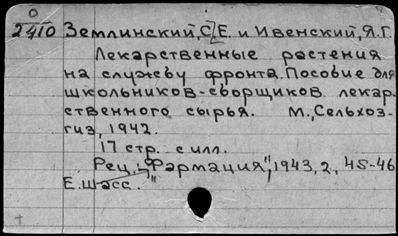 0
2410 Землинский, С.Е. и Ивенский, Я.Г.
Лекарственные растения
на службу фронта. Пособие для
школьников-сборщиков лекар-
ственного сырья. М., Сельхоз-
гиз, 1942.
17 стр. с илл.
Рец. "Фармация", 1943, 2, 45-46
Е. Шасс.